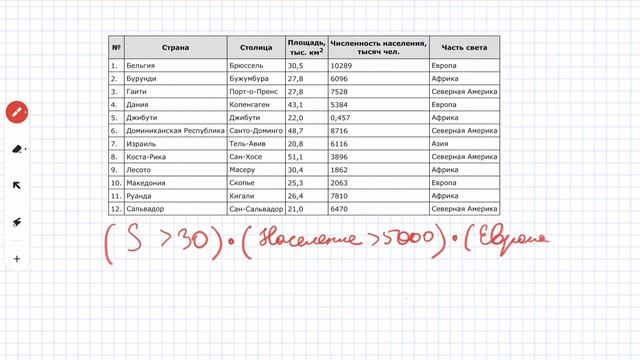 № Страна Столица Площадь, тыс. км² Численность населения, тысяч чел. Часть света
1. Бельгия Брюссель 30,5 10289 Европа
2. Бурунди Бужумбура 27,8 6096 Африка
3. Гаити Порт-о-Пренс 27,8 7528 Северная Америка
4. Дания Копенгаген 43,1 5384 Европа
5. Джибути Джибути 22,0 0,457 Африка
6. Доминиканская Республика Санто-Доминго 48,7 8716 Северная Америка
7. Израиль Тель-Авив 20,8 6116 Азия
8. Коста-Рика Сан-Хосе 51,1 3896 Северная Америка
9. Лесото Масеру 30,4 1862 Африка
10. Македония Скопье 25,3 2063 Европа
11. Руанда Кигали 26,4 7810 Африка
12. Сальвадор Сан-Сальвадор 21,0 6470 Северная Америка
(S > 30) · (Население > 5000) · (Европа